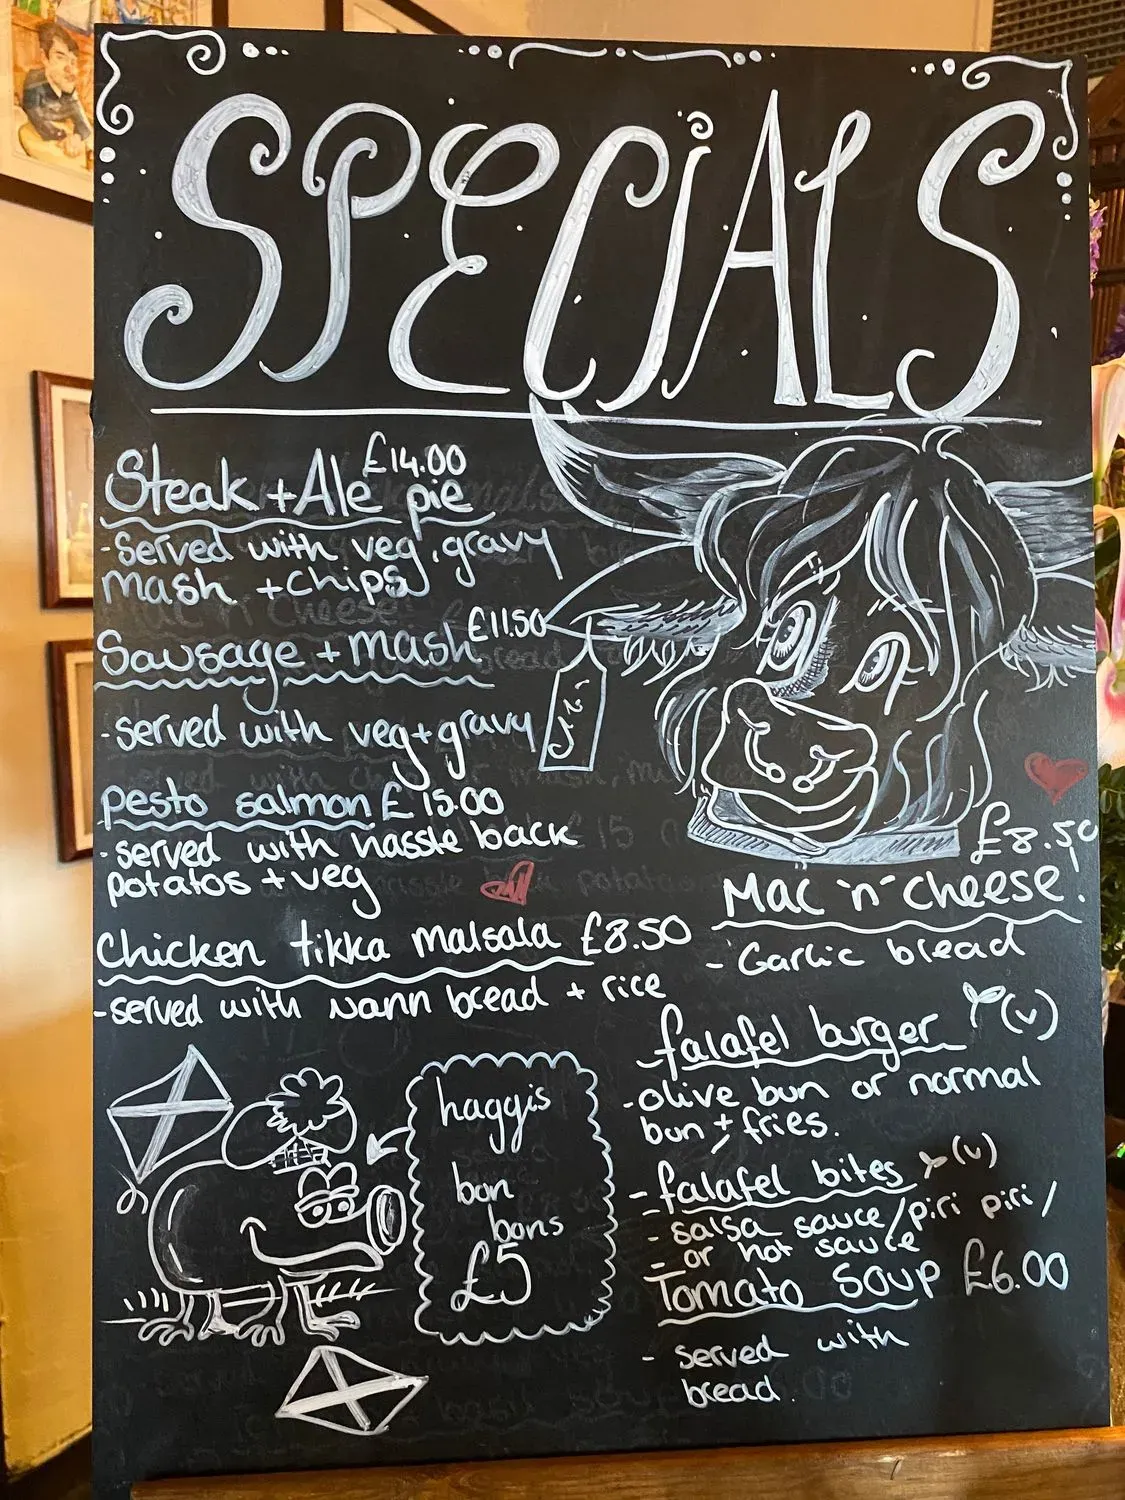 SPECIALS
£14.00
Steak + Ale pie
- served with veg, gravy
mash + chips
£11.50
Sausage + mash
- served with veg + gravy
pesto salmon £15.00
- served with hassle back
potatos + veg
Chicken tikka malsala £8.50
- served with Nann bread + rice
haggis
bon
bons
£5
£8.50
Mac "n" cheese!
- Garlic bread
falafel burger (v)
- olive bun or normal
bun + fries.
- falafel bites (v)
- salsa sauce/piri piri/
- or hot sauce
Tomato Soup £6.00
- served with
bread.